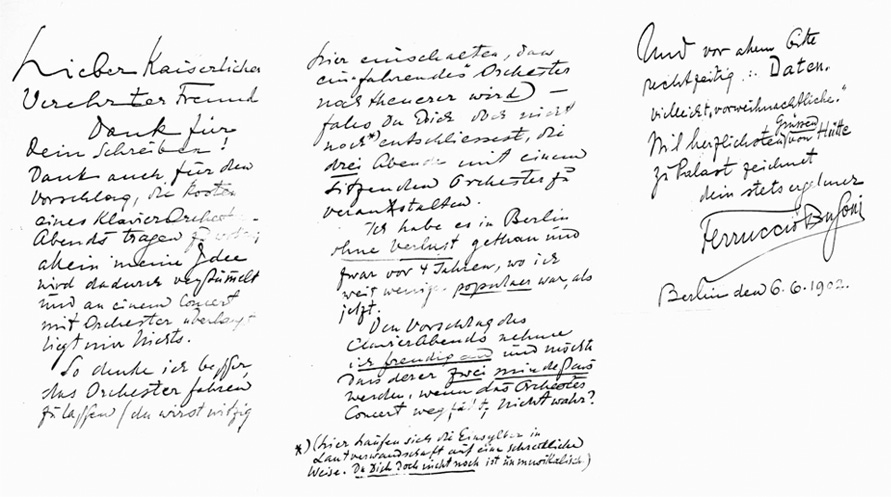 Lieber Kaiserlicher
Verehrter Freund
Dank für
Dein Schreiben!
Dank auch, für den
Vorschlag, die Kosten
eines Klavier Orchester-
Abends tragen zu
allein meine Idee
wird dadurch verstümelt
und an einem Concert
mit Orchester überhaupt
liegt mir nichts.
So denke ich besser,
das Orchester fahren
zu lassen (du wirst witzig
hier einschalten, dass
ein „fahrendes“ Orchester
noch theuerer wird) —
falls Du Dich doch nicht
noch*) entschliessest, die
drei Abende mit einem
sitzenden Orchester zu
veranstalten.
Ich habe es in Berlin
ohne Verlust gethan und
zwar vor 4 Jahren, wo ich
weit weniger populaer war, als
jetzt.
Den Vorschlag des
Clavierabends nehme
ich freudig an und möchte
dass derer zwei mindestens
werden, wenn das Orchester
Concert wegfällt, nicht wahr?
*) (hier häufen sich die Einsylber in
Lautverwandschaft auf eine schreckliche
Weise. Du Dich doch nicht noch ist unmusikalisch.)
Und vor allem bitte
rechtzeitig :. Daten,
vielleicht „vorweihnachtliche.“
Mit herzlichsten Grüssen von Hütte
zu Palast zeichnet
dein stets ergebener
Ferruccio Busoni
Berlin den 6. 6. 1902.